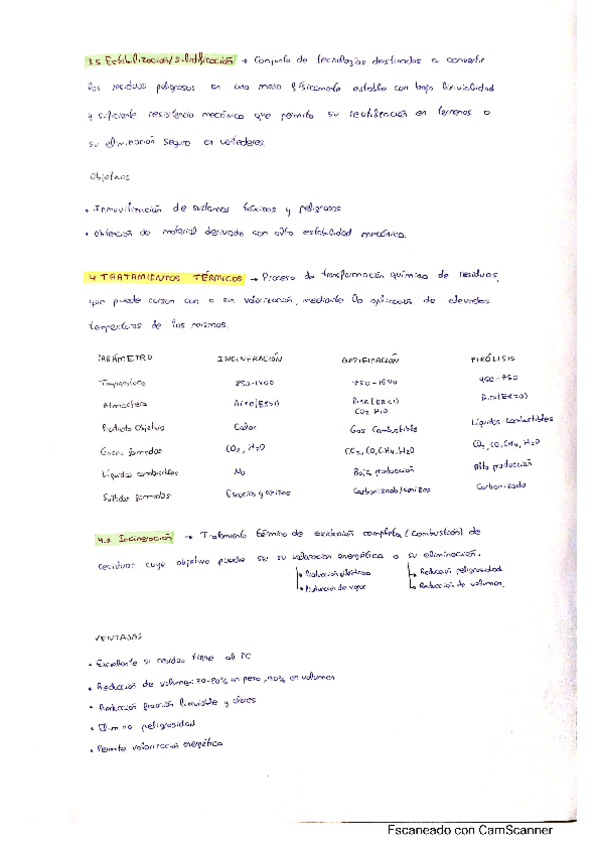 3.5 Estabilización/solidificación → Conjunto de tecnologías destinadas a convertir
los residuos peligrosos en una masa físicamente estable con baja lixiviabilidad
y suficiente resistencia mecánica que permita su reutilización en terrenos o
su eliminación segura en vertederos.
Objetivos
• Inmovilización de sustancias tóxicas y peligrosas
• Obtención de material derivado con alta estabilidad mecánica.
4 TRATAMIENTOS TÉRMICOS → Proceso de transformación química de residuos,
que puede cursar con o sin valorización, mediante la aplicación de elevadas
temperaturas de los mismos.
PARÁMETRO INCINERACIÓN GASIFICACIÓN PIRÓLISIS
Temperatura 850-1400 750-1600 450-750
Atmósfera Aire (ER>1) Aire (ER<1) CO2 H2O Aire (ER=0)
Producto Objetivo Calor Gas Combustible Líquidos combustibles
Gases formados CO2, H2O CO2, CO, CH4, H2O CO2, CO, CH4, H2O
Líquidos combustibles No Baja producción Alta producción
Sólidos formados Escorias y cenizas Carbonizado/cenizas Carbonizado
Incineración → Tratamiento térmico de oxidación completa (combustión) de
residuos cuyo objetivo puede ser su valoración energética o su eliminación.
Producción eléctrica Reducción peligrosidad
Producción de vapor Reducción de volumen.
VENTAJAS
• Excelente si residuo tiene alto PC
• Reducción de volumen: 70-80% en peso, 90% en volumen
• Reducción fracción lixiviable y olores
• Elimina peligrosidad
• Permite valorización energética
Escaneado con CamScanner